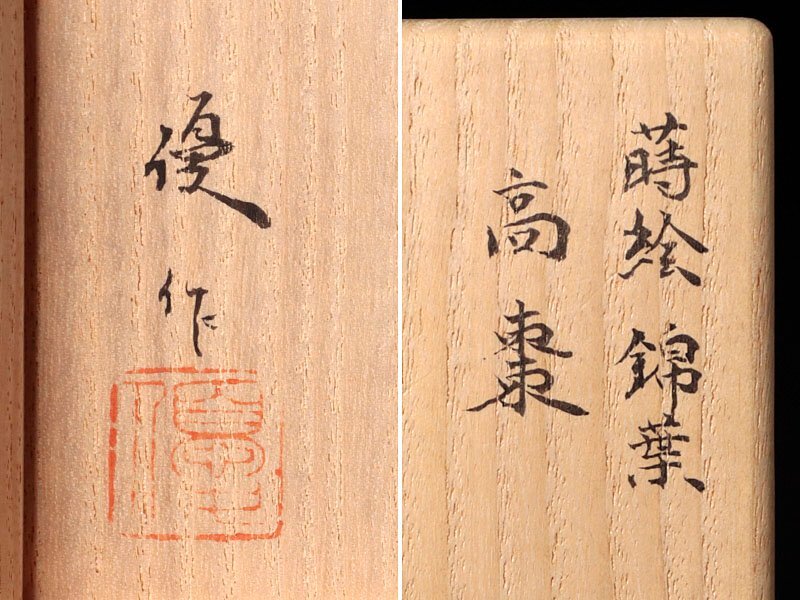 優
作
蒔絵 錦葉
高棗